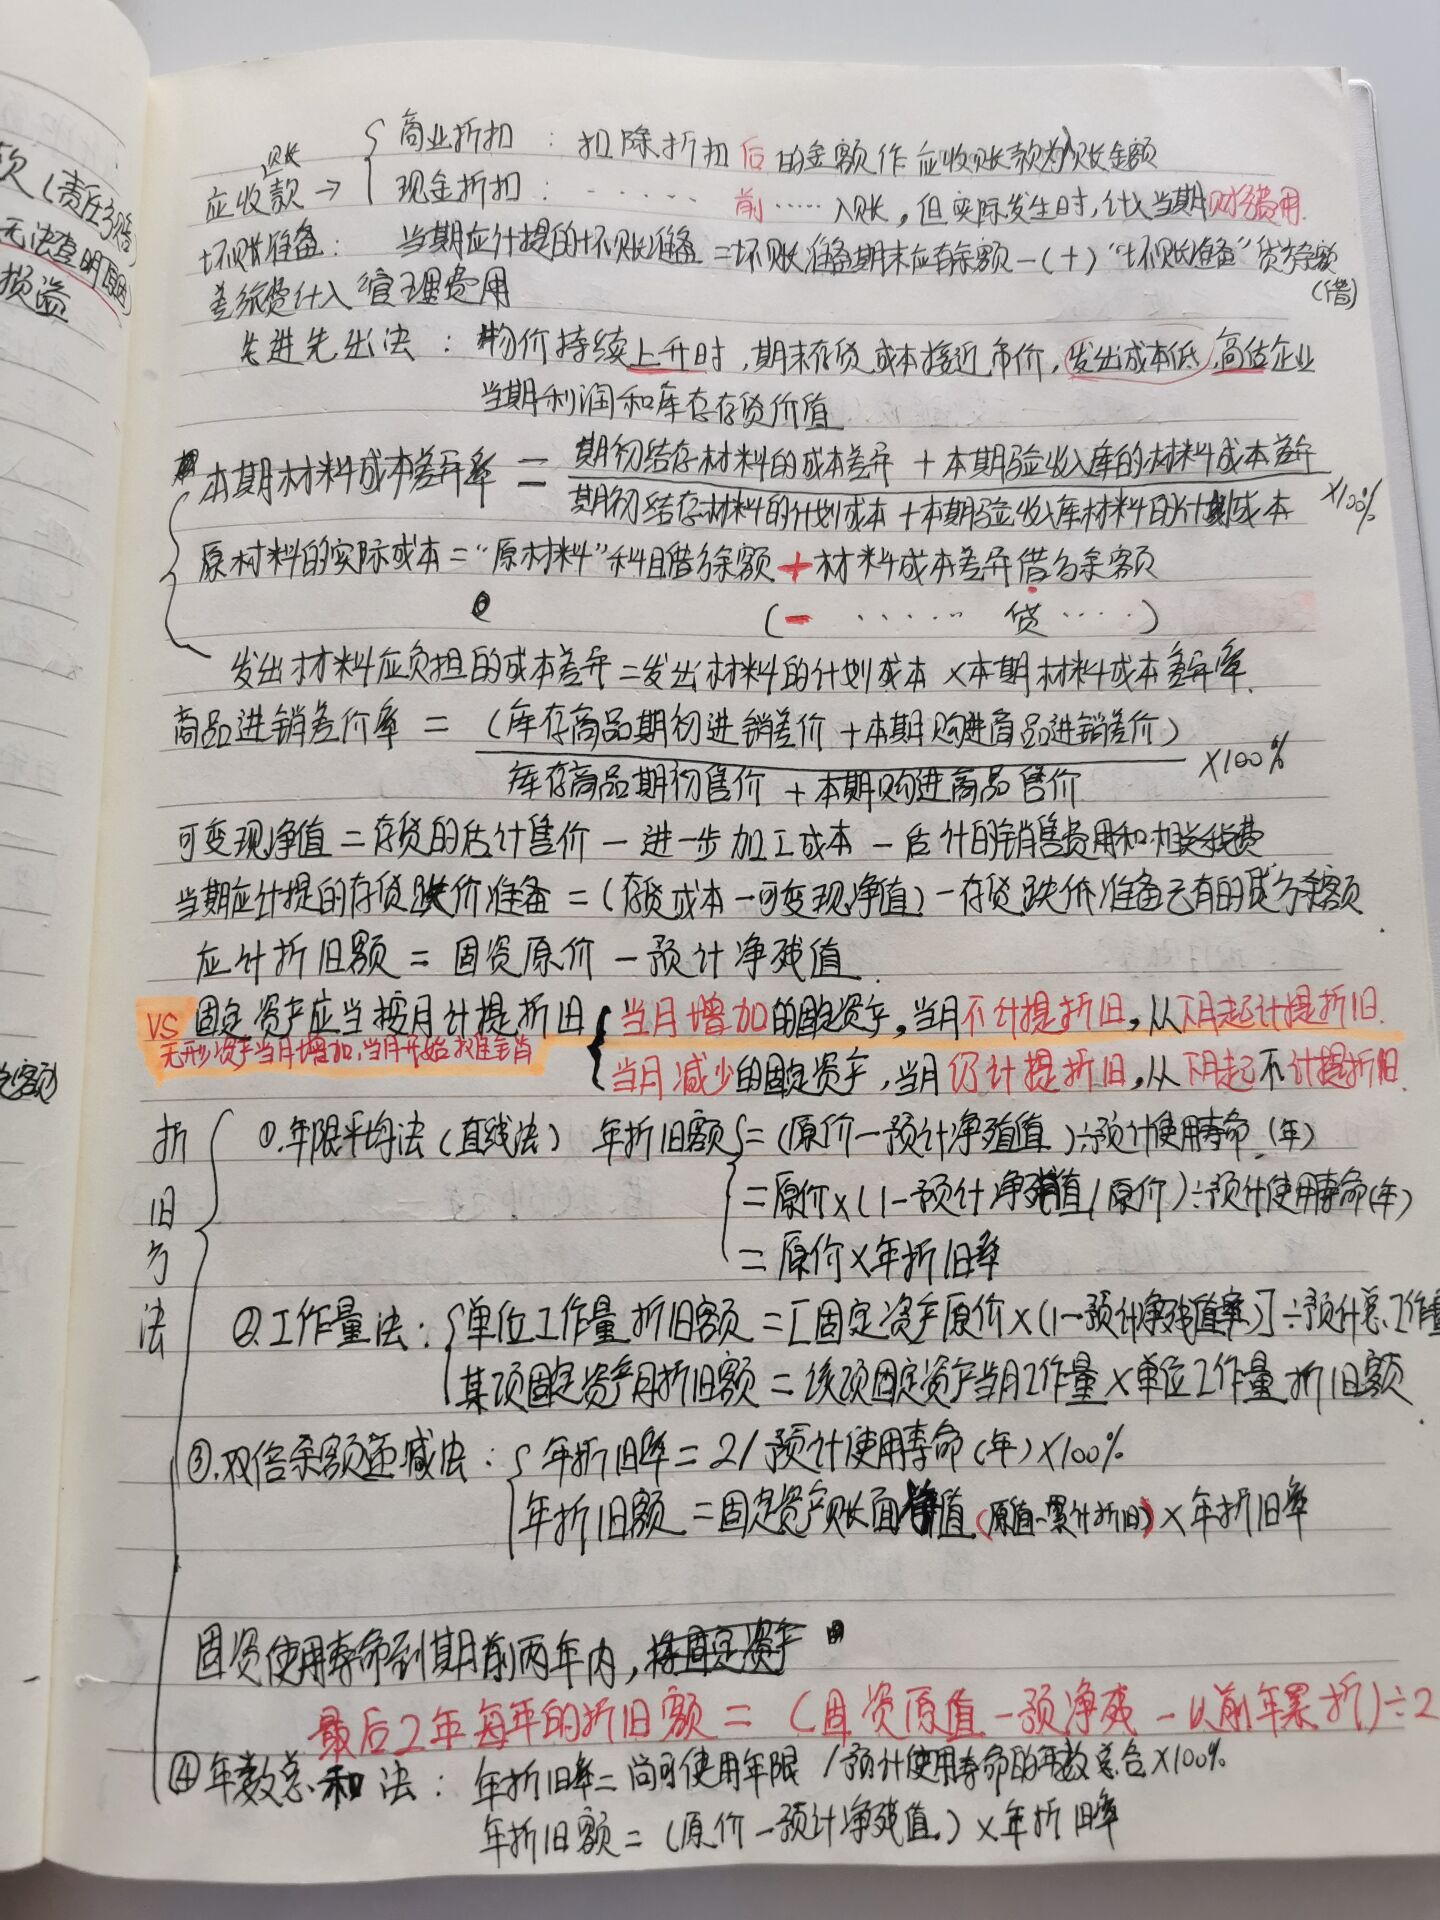 欠(责任方赔)
无法查明原因
损益
应收账款 → { 商业折扣 : 扣除折扣后的金额作应收账款为入账金额
现金折扣 : ····· 前····· 入账,但实际发生时,计入当期财务费用.
坏账准备: 当期应计提的坏账准备 = 坏账准备期末应有余额 -(+)"坏账准备"贷方余额
(借)
差旅费计入 管理费用
先进先出法 : 物价持续上升时,期末存货成本接近市价,发出成本低,高估企业
当期利润和库存存货价值
本期材料成本差异率 = 期初结存材料的成本差异 + 本期验收入库的材料成本差异
期初结存材料的计划成本 + 本期验收入库材料的计划成本 ×100%
原材料的实际成本 = "原材料"科目借方余额 + 材料成本差异借方余额
(- ······ 贷····)
发出材料应负担的成本差异 = 发出材料的计划成本 × 本期材料成本差异率.
商品进销差价率 = (库存商品期初进销差价 + 本期购进商品进销差价)
库存商品期初售价 + 本期购进商品售价 ×100%
可变现净值 = 存货的估计售价 - 进一步加工成本 - 估计的销售费用和相关税费
当期应计提的存货跌价准备 = (存货成本 - 可变现净值) - 存货跌价准备已有的贷方余额
应计折旧额 = 固资原价 - 预计净残值.
VS 固定资产应当按月计提折旧 { 当月增加的固定资产,当月不计提折旧,从下月起计提折旧.
无形资产当月增加,当月开始摊销
当月减少的固定资产,当月仍计提折旧,从下月起不计提折旧.
折旧方法
①.年限平均法(直线法) 年折旧额 { = (原价-预计净残值)÷预计使用寿命(年)
= 原价×(1-预计净残值/原价)÷预计使用寿命(年)
= 原价×年折旧率
②.工作量法: { 单位工作量折旧额 = [固定资产原价×(1-预计净残值率)]÷预计总工作量
某项固定资产月折旧额 = 该项固定资产当月工作量×单位工作量折旧额
③.双倍余额递减法: { 年折旧率 = 2/预计使用寿命(年)×100%
年折旧额 = 固定资产账面净值(原值-累计折旧)×年折旧率
固资使用寿命到期前两年内,将固定资产
最后2年每年的折旧额 = (固资原值-预净残-以前年累折)÷2
④年数总和法: 年折旧率 = 尚可使用年限 /预计使用寿命的年数总合×100%
年折旧额 = (原价-预计净残值.)×年折旧率